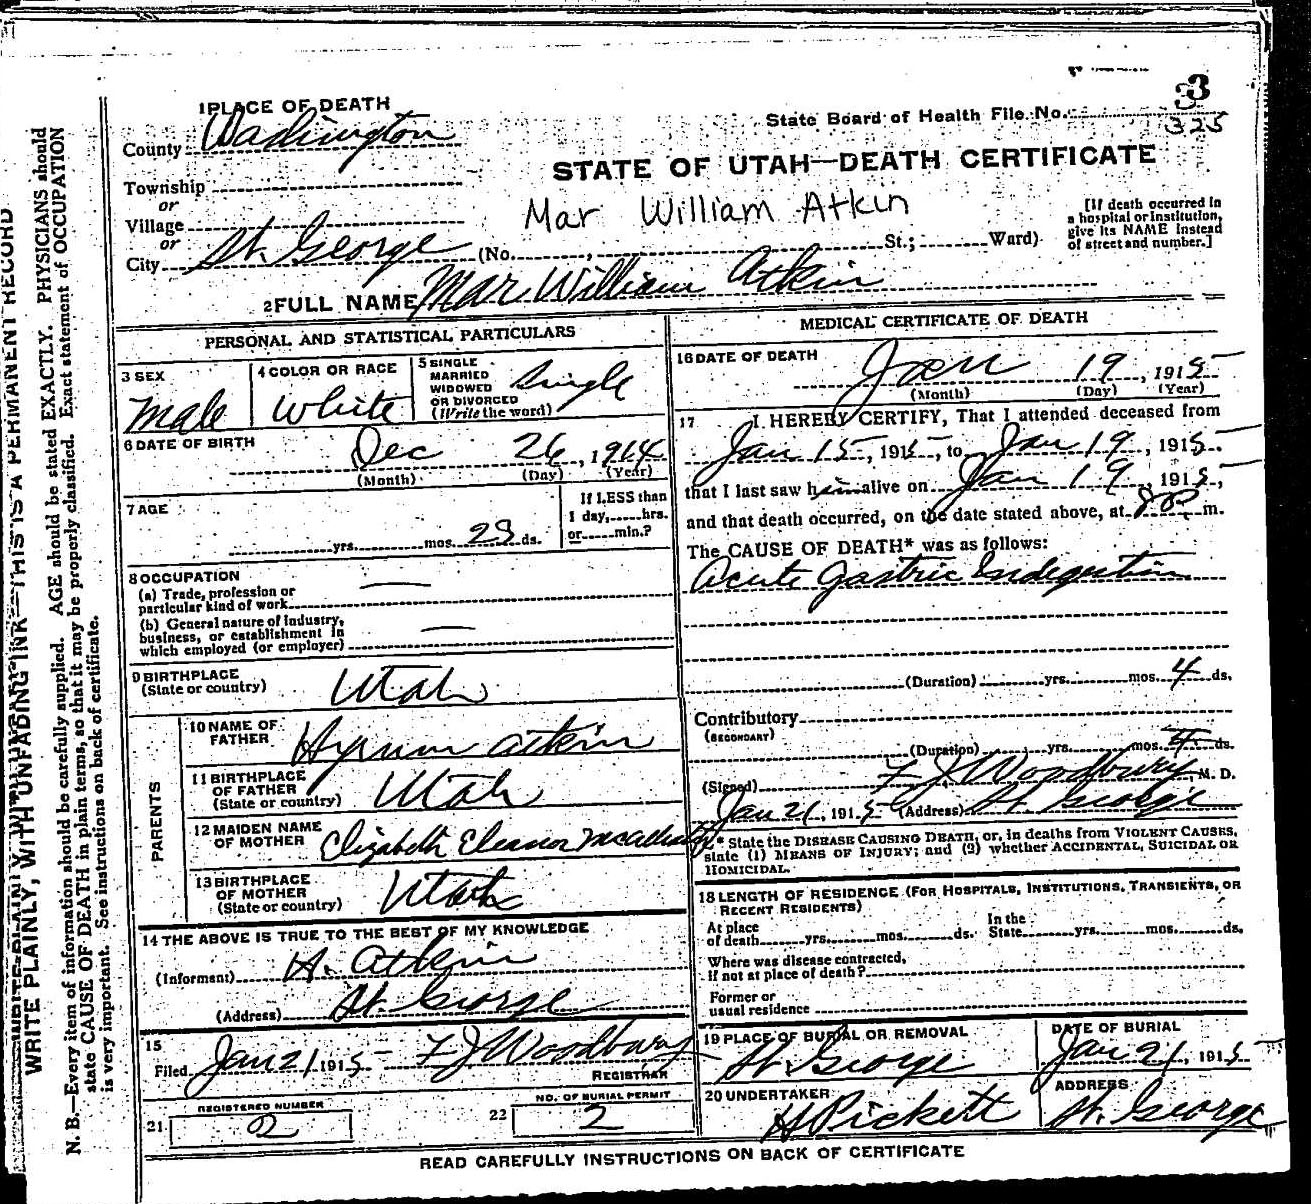 3
State Board of Health File No.
325
1 PLACE OF DEATH
County Washington
STATE OF UTAH—DEATH CERTIFICATE
Township
or
Village
or
City St. George (No. , St.; Ward)
Mar William Atkin
[If death occurred in
a hospital or institution,
give its NAME instead
of street and number.]
2 FULL NAME Mar William Atkin
PERSONAL AND STATISTICAL PARTICULARS
3 SEX
Male
4 COLOR OR RACE
White
5 SINGLE
MARRIED
WIDOWED
OR DIVORCED
(Write the word)
Single
6 DATE OF BIRTH
Dec 26, 1914
(Month) (Day) (Year)
7 AGE
yrs. mos. 23 ds.
If LESS than
1 day, hrs.
or min.?
8 OCCUPATION
(a) Trade, profession or
particular kind of work —
(b) General nature of industry,
business, or establishment in
which employed (or employer) —
9 BIRTHPLACE
(State or country) Utah
PARENTS
10 NAME OF
FATHER Hyrum Atkin
11 BIRTHPLACE
OF FATHER
(State or country) Utah
12 MAIDEN NAME
OF MOTHER Elizabeth Eleanor
13 BIRTHPLACE
OF MOTHER
(State or country) Utah
14 THE ABOVE IS TRUE TO THE BEST OF MY KNOWLEDGE
(Informant) H. Atkin
(Address) St. George
15
Filed Jan 21 1915 F J Woodbury
REGISTRAR
REGISTERED NUMBER
21 2
NO. OF BURIAL PERMIT
22 2
MEDICAL CERTIFICATE OF DEATH
16 DATE OF DEATH
Jan 19, 1915
(Month) (Day) (Year)
17 I HEREBY CERTIFY, That I attended deceased from
Jan 15, 1915, to Jan 19, 1915.
that I last saw him alive on Jan 19, 1915,
and that death occurred, on the date stated above, at 8 P m.
The CAUSE OF DEATH* was as follows:
Acute Gastric Indigestion
(Duration) yrs. mos. 4 ds.
Contributory
(SECONDARY)
(Duration) yrs. mos. 4 ds.
(Signed) F J Woodbury, M. D.
Jan 21, 1915 (Address) St George
* State the DISEASE CAUSING DEATH, or, in deaths from VIOLENT CAUSES,
state (1) MEANS OF INJURY; and (2) whether ACCIDENTAL, SUICIDAL OR
HOMICIDAL.
18 LENGTH OF RESIDENCE (FOR HOSPITALS, INSTITUTIONS, TRANSIENTS, OR
RECENT RESIDENTS)
At place
of death yrs. mos. ds.
In the
State yrs. mos. ds.
Where was disease contracted,
if not at place of death?
Former or
usual residence
19 PLACE OF BURIAL OR REMOVAL
St. George
DATE OF BURIAL
Jan 21, 1915
20 UNDERTAKER
H Pickett
ADDRESS
St. George
READ CAREFULLY INSTRUCTIONS ON BACK OF CERTIFICATE
WRITE PLAINLY, WITH UNFADING INK—THIS IS A PERMANENT RECORD
N. B.—Every item of information should be carefully supplied. AGE should be stated EXACTLY. PHYSICIANS should
state CAUSE OF DEATH in plain terms, so that it may be properly classified. Exact statement of OCCUPATION
is very important. See instructions on back of certificate.